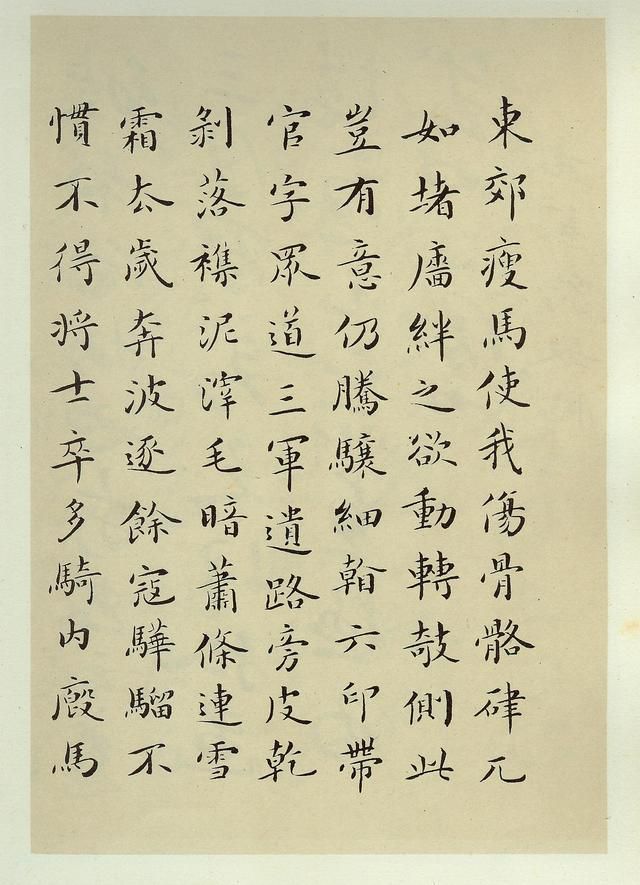 東郊瘦馬使我傷骨骼硉兀
如堵廧絆之欲動轉攲側此
豈有意仍騰驤細看六印帶
官字眾道三軍遺路旁皮乾
剝落襍泥滓毛暗蕭條連雪
霜去歲奔波逐餘寇驊騮不
慣不得將士卒多騎內廄馬